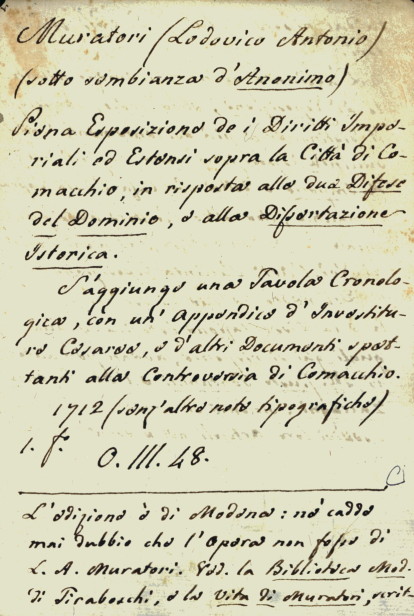 Muratori (Lodovico Antonio)
(sotto sembianza d'Anonimo)
Piena Esposizione de i Diritti Impe-
riali ed Estensi sopra la Città di Co-
macchio, in risposta alle due Difese
del Dominio, e alla Dissertazione
Istorica.
S'aggiunge una Tavola Cronolo-
gica, con un' Appendice d'Investitu-
re Cesaree, e d'altri Documenti spet-
tanti alla Controversia di Comacchio.
1712 (senz'altre note tipografiche)
1. f.º
O. III. 48.
L'edizione è di Modena: nè cadde
mai dubbio che l'Opera non fosse di
L. A. Muratori. Ved. la Biblioteca Mod.
di Tiraboschi, e la Vita di Muratori, scrit